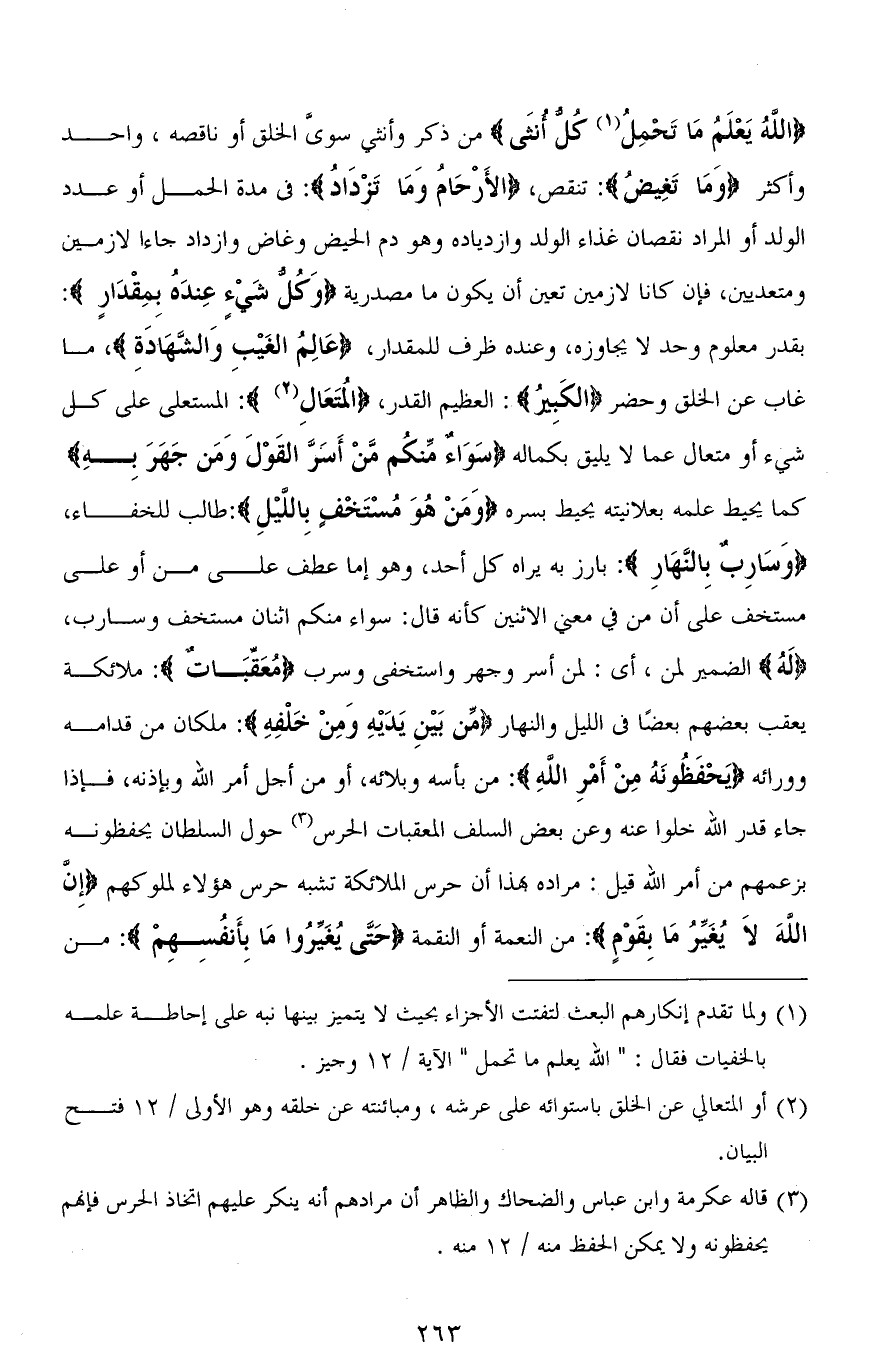 ﴿اللَّهُ يَعْلَمُ مَا تَحْمِلُ(١) كُلُّ أُنثَى﴾ من ذكر وأنثي سوىَّ الخلق أو ناقصه ، واحد
وأكثر ﴿وَمَا تَغِيضُ﴾: تنقص، ﴿الأَرْحَامُ وَمَا تَزْدَادُ﴾: فى مدة الحمل أو عدد
الولد أو المراد نقصان غذاء الولد وازدياده وهو دم الحيض وغاض وازداد جاءا لازمين
ومتعديين، فإن كانا لازمين تعين أن يكون ما مصدرية ﴿وَكُلُّ شَيْءٍ عِندَهُ بِمِقْدَارٍ ﴾:
بقدر معلوم وحد لا يجاوزه، وعنده ظرف للمقدار، ﴿عَالِمُ الغَيْبِ وَالشَّهَادَةِ ﴾، ما
غاب عن الخلق وحضر ﴿الكَبِيرُ﴾ : العظيم القدر، ﴿الْمُتَعَالِ(٢) ﴾: المستعلى على كل
شيء أو متعال عما لا يليق بكماله ﴿سَوَاءٌ مِّنكُم مَّنْ أَسَرَّ القَوْلَ وَمَن جَهَرَ بِهِ﴾
كما يحيط علمه بعلانيته يحيط بسره ﴿وَمَنْ هُوَ مُسْتَخْفٍ بِاللَّيْلِ﴾:طالب للخفاء،
﴿وَسَارِبٌ بِالنَّهَارِ ﴾: بارز به يراه كل أحد، وهو إما عطف على من أو على
مستخف على أن من في معني الاثنين كأنه قال: سواء منكم اثنان مستخف وسارب،
﴿لَهُ﴾ الضمير لمن ، أى : لمن أسر وجهر واستخفى وسرب ﴿مُعَقِّبَاتٌ ﴾: ملائكة
يعقب بعضهم بعضًا فى الليل والنهار ﴿مِّن بَيْنِ يَدَيْهِ وَمِنْ خَلْفِهِ﴾: ملكان من قدامه
وورائه ﴿يَحْفَظُونَهُ مِنْ أَمْرِ اللَّهِ﴾: من بأسه وبلائه، أو من أجل أمر الله وبإذنه، فإذا
جاء قدر الله خلوا عنه وعن بعض السلف المعقبات الحرس(٣) حول السلطان يحفظونه
بزعمهم من أمر الله قيل : مراده بهذا أن حرس الملائكة تشبه حرس هؤلاء لملوكهم ﴿إِنَّ
اللَّهَ لاَ يُغَيِّرُ مَا بِقَوْمٍ﴾: من النعمة أو النقمة ﴿حَتَّى يُغَيِّرُوا مَا بِأَنفُسِهِمْ ﴾: من
(١) ولما تقدم إنكارهم البعث لتفتت الأجزاء بحيث لا يتميز بينها نبه على إحاطة علمه
بالخفيات فقال : " الله يعلم ما تحمل " الآية / ١٢ وجيز .
(٢) أو المتعالي عن الخلق باستوائه على عرشه ، ومبائنته عن خلقه وهو الأولى / ١٢ فتح
البيان.
(٣) قاله عكرمة وابن عباس والضحاك والظاهر أن مرادهم أنه ينكر عليهم اتخاذ الحرس فإنهم
يحفظونه ولا يمكن الحفظ منه / ١٢ منه .
٢٦٣